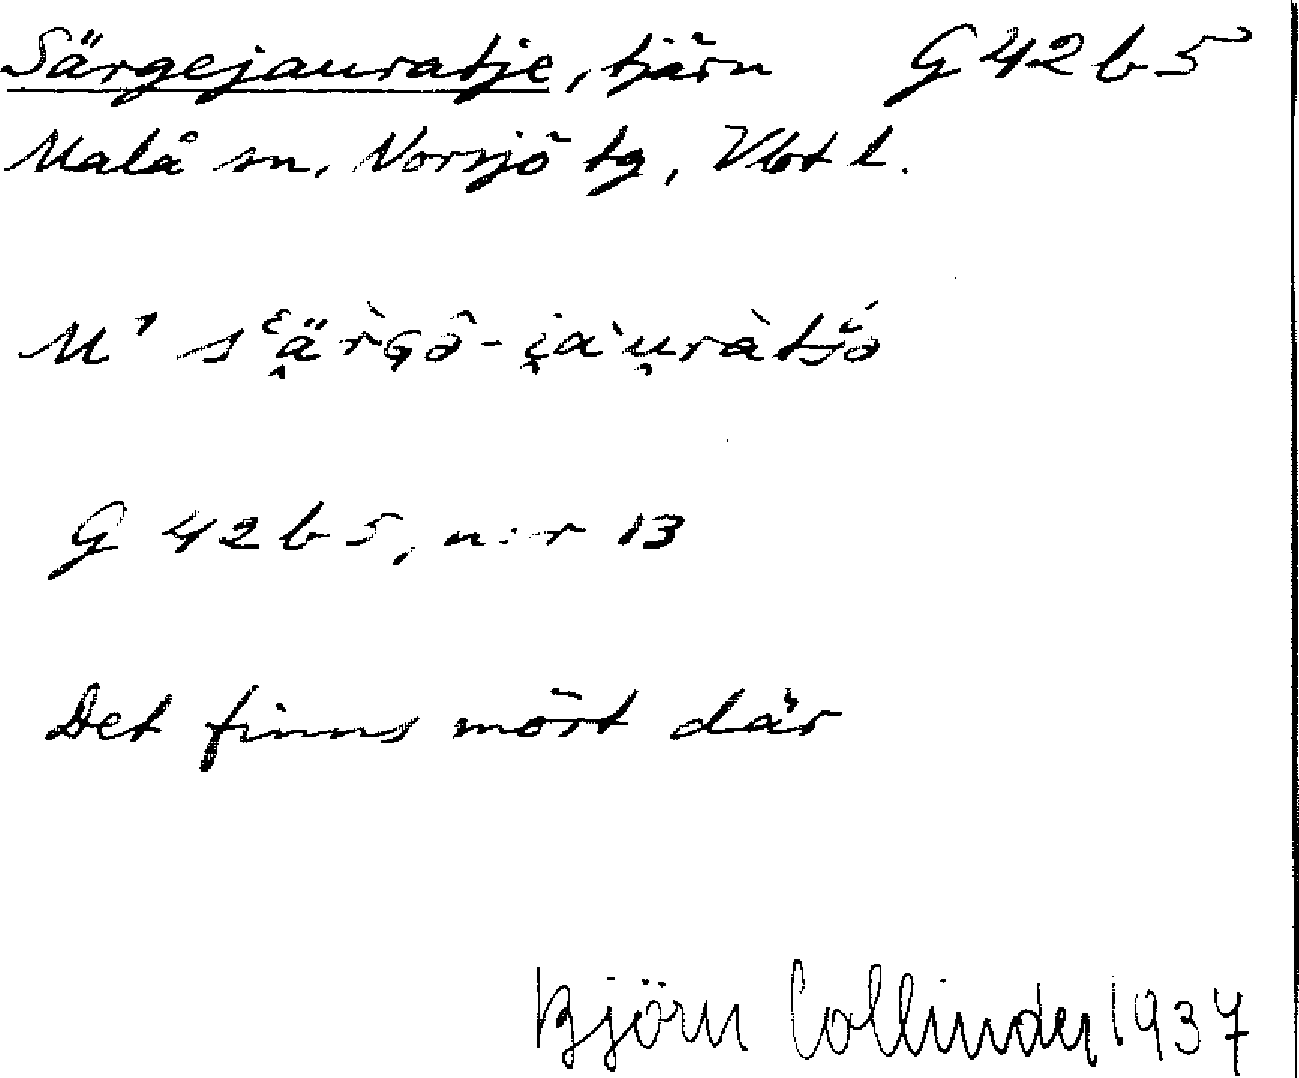 Särgejauratje, tjärn G 42 b 5
Malå sn, Norsjö tg, Vbt l.
M'
G 42 b 5, n:r 13
Det finns mört där
Björn Collinder 1937